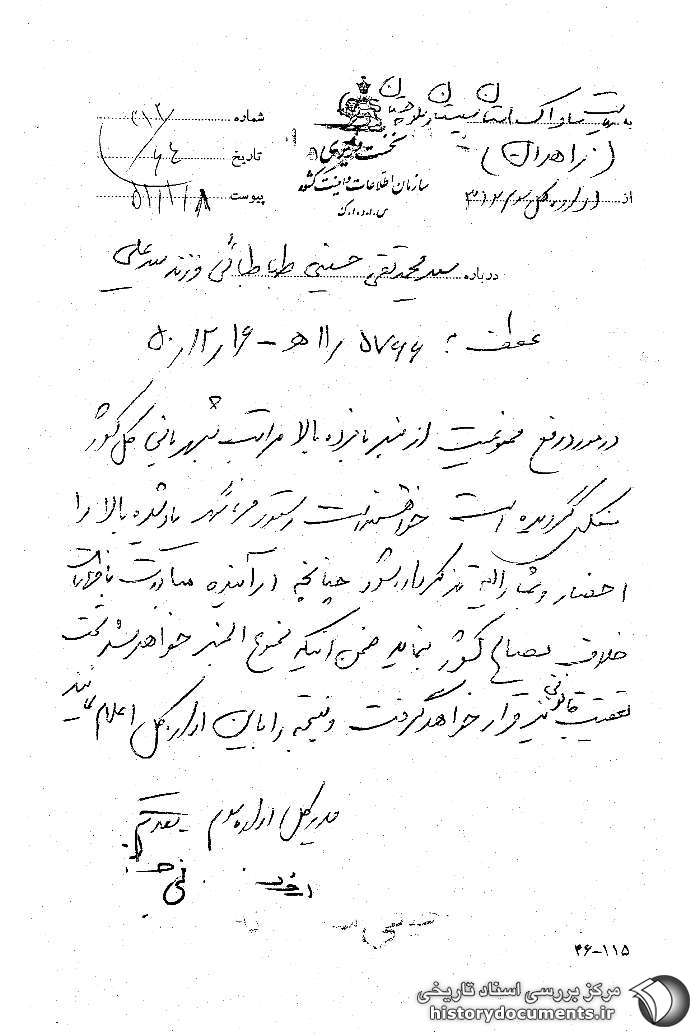 شماره ۳۱۲/
به ریاست ساواک استان سیستان و بلوچستان
(زاهدان)
تاریخ
نخست وزیری
سازمان اطلاعات و امنیت کشور
س.ا.و.ا.ک
از اداره کل سوم ۳۱۲
پیوست ۵۱/۱/۸
درباره سید محمد تقی حسینی طباطبائی فرزند سید علی
عطف به ۵۷۶۶/۱۱ه‍ – ۱۶/۱۲/۵۰
در مورد رفع ممنوعیت از منبر نامبرده بالا مراتب به شهربانی کل کشور
منعکس گردیده است خواهشمند است دستور فرمائید یاد شده بالا را
احضار و به مشارالیه تذکر داده شود چنانچه در آینده مبادرت به اظهارات
خلاف مصالح کشور بنماید ضمن آنکه ممنوع المنبر خواهد شد تحت
تعقیب قانونی نیز قرار خواهد گرفت و نتیجه را باین اداره کل اعلام نمایند
مدیر کل اداره سوم مقدم
۴۶-۱۱۵
مرکز بررسی اسناد تاریخی
historydocuments.ir